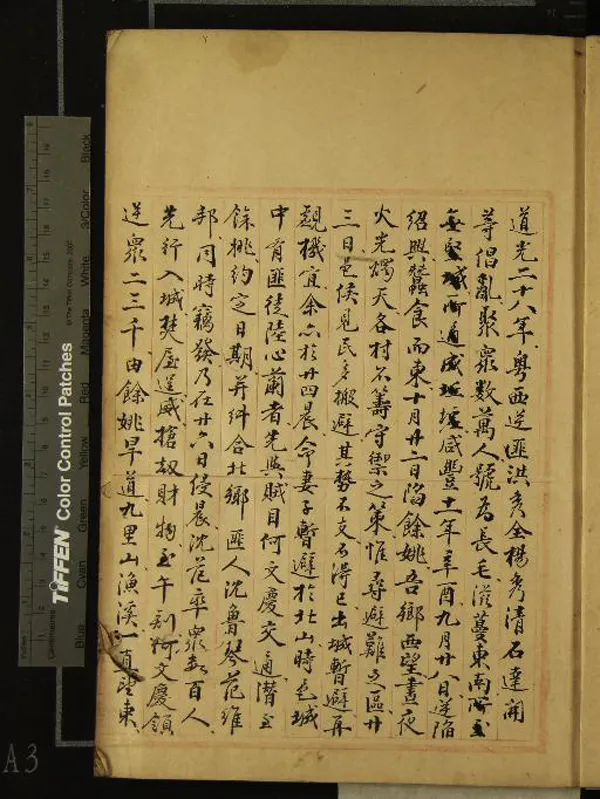 道光二十八年粤西逆匪洪秀全楊秀清石達開
等倡亂聚眾數萬人號為長毛滋蔓東南所至
無堅城所過成坵墟咸豐十一年辛酉九月廿八日逆陷
紹興蠶食而東十月廿二日陷餘姚吾鄉西望晝夜
火光燭天各村不籌守禦之策惟尋避難之區廿
三日邑侯見民多搬避其勢不支不得已出城暫避再
觀機宜余亦於廿四晨命妻子暫避於北山時邑城
中有匪徒陸心蘭者先與賊目何文慶交通潛至
餘姚約定日期并糾合北鄉匪人沈魯琴范維
邦同時竊發乃在廿六日侵晨沈范率眾數百人
先行入城焚屋逞威搶劫財物至午刻何文慶領
逆眾二三千由餘姚早道九里山漁溪一直望東
TIFFEN Color Control Patches
© The Tiffen Company, 2007
Centimetres
Blue
Cyan
Green
Yellow
Red
Magenta
White
3/Color
Black
A3